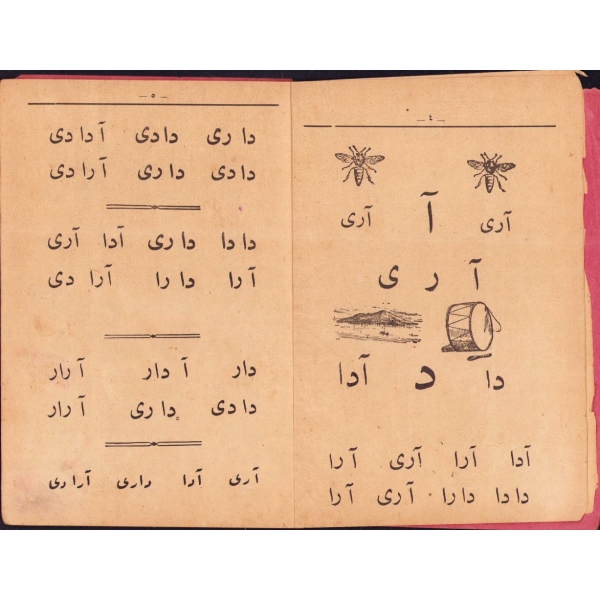 — ٤ —
آری آ آری
آ ر ی
دا د آدا
آدا آرا آری آرا
دادا دارا آری آرا
— ٥ —
داری دادی آدادی
دادی داری آرادی
دادا داری آدا آری
آرا دارا آرادی
دار آدار آرار
دادی داری آرار
آری آدا داری آرادی